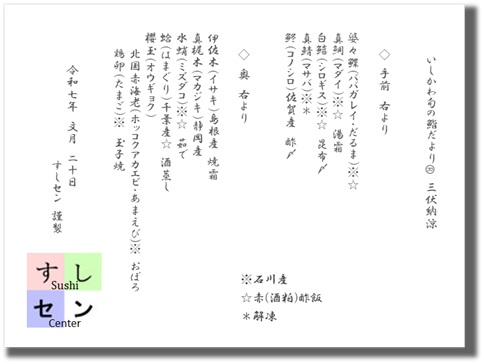 いしかわ旬の鮨だより 三伏納涼
◇ 手前 右より
婆々鰈(ババガレイ・だるま)※☆
真鯛(マダイ)※☆ 湯霜
白鱚(シロギス)※☆ 昆布〆
真鯖(マサバ)※＊
鮗(コノシロ)佐賀産 酢〆
◇ 奥 右より
伊佐木(イサキ)島根産 焼霜
真梶木(マカジキ)静岡産
水蛸(ミズダコ)※☆ 茹で
蛤(はまぐり)千葉産☆ 酒蒸し
櫻玉(オウギョク)
北国赤海老(ホッコクアカエビ・あまえび)※ おぼろ
鶏卵(たまご)※ 玉子焼
令和七年 文月 二十日
すしセン 謹製
※石川産
☆赤(酒粕)酢飯
＊解凍
すし
Sushi
セン
Center